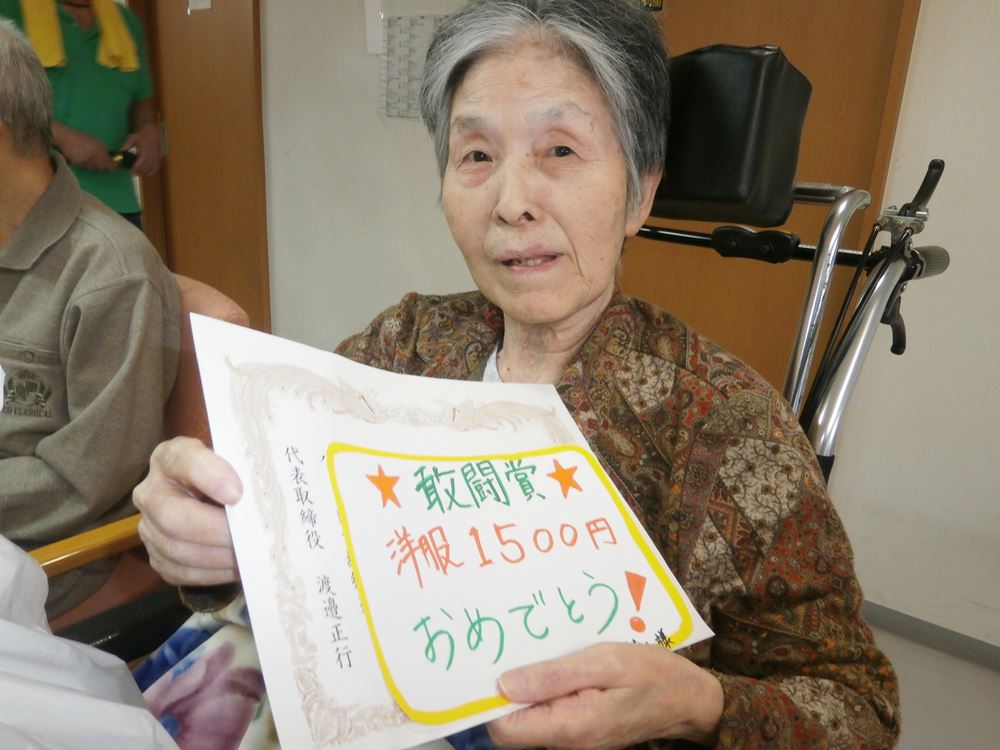 ★敢闘賞★
洋服1500円
おめでとう!
様
代表取締役 渡邉正行
CLASSICAL